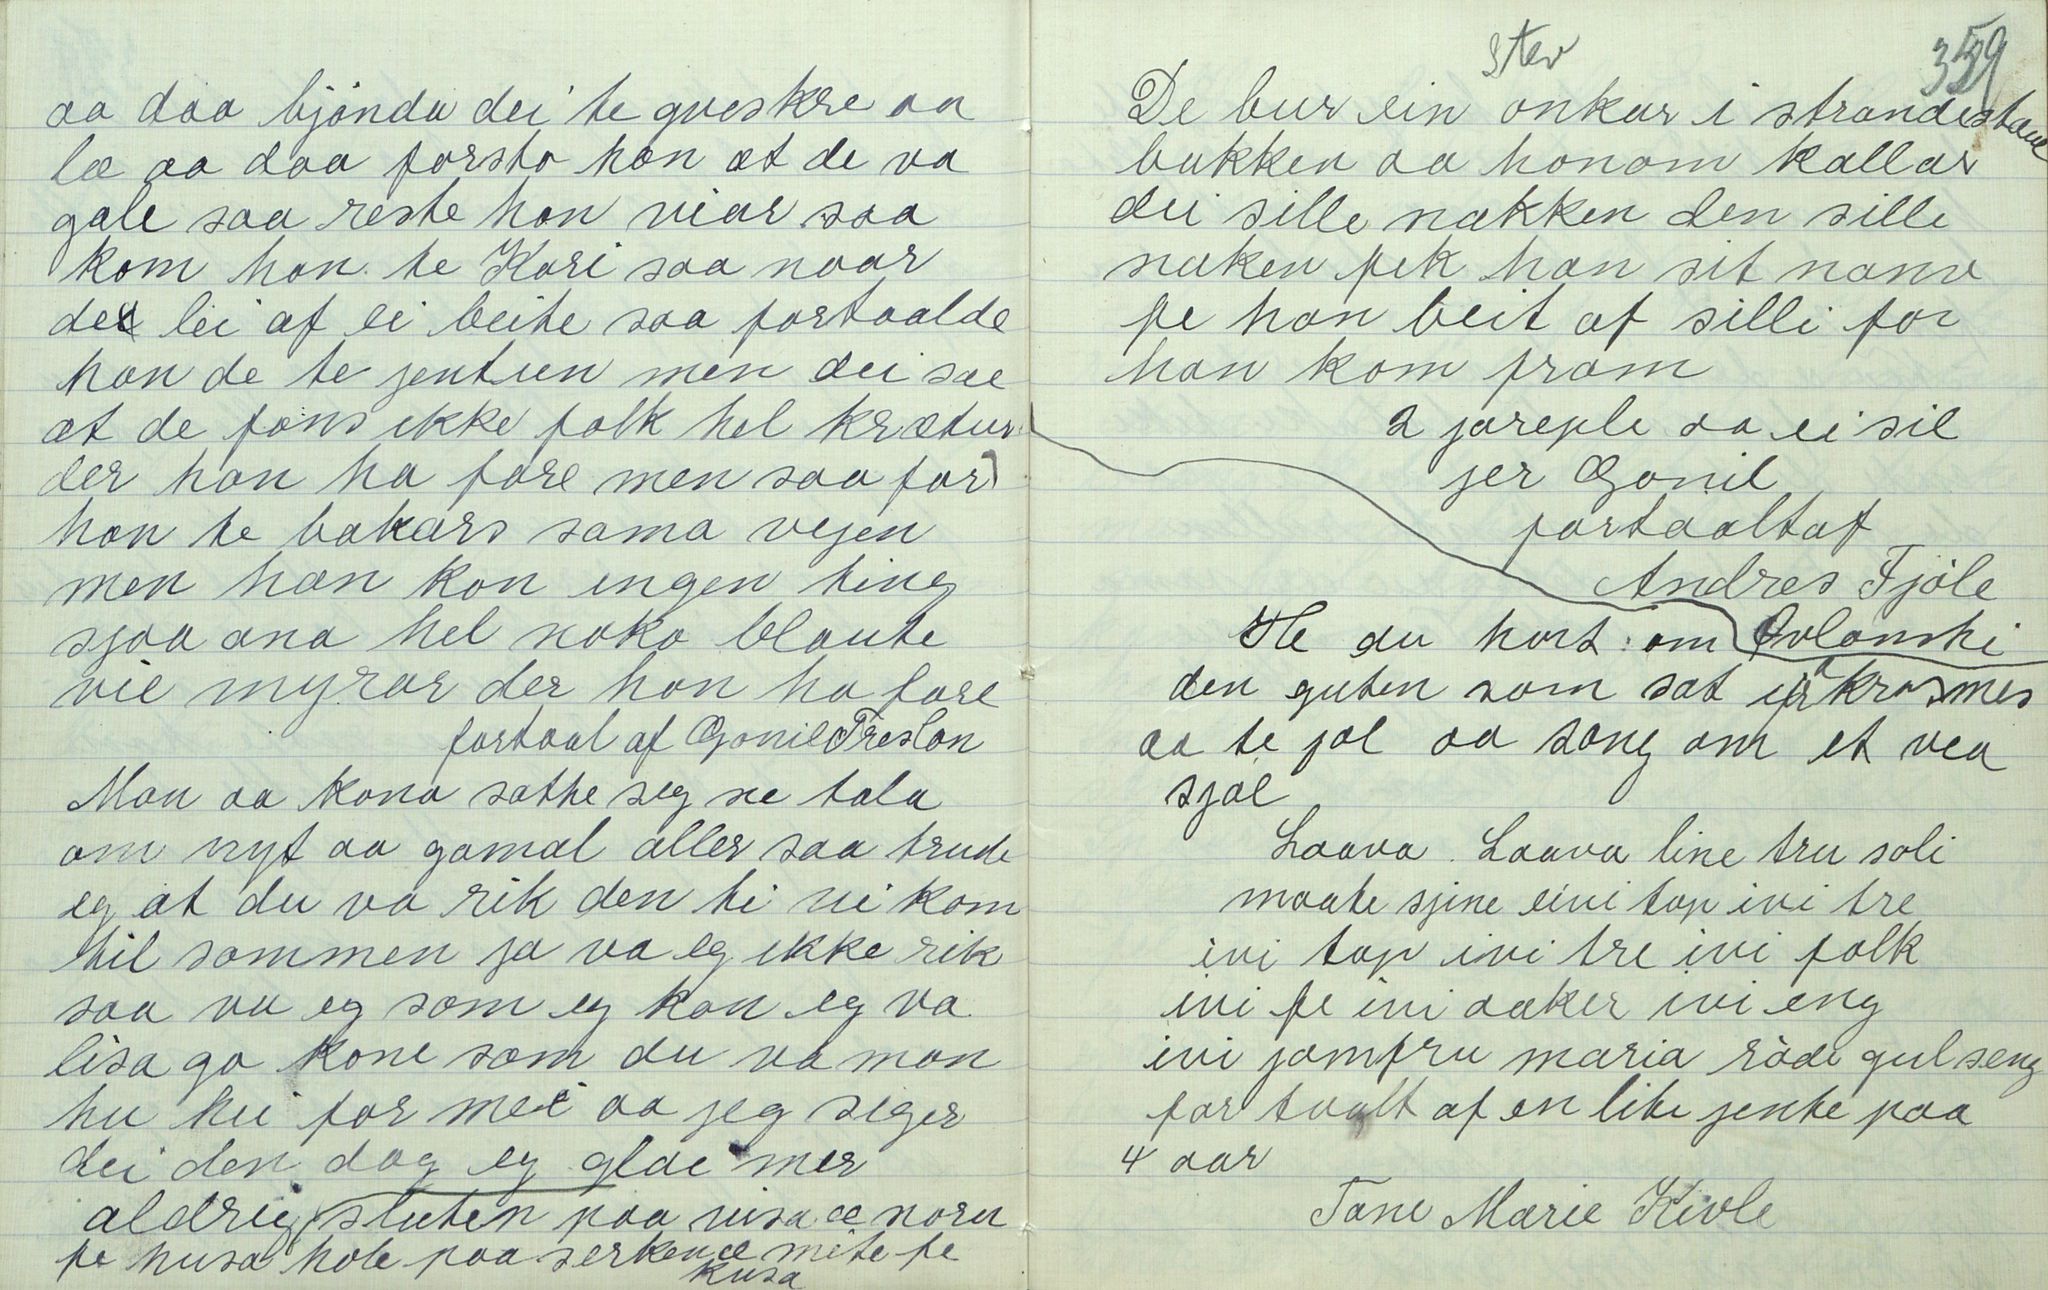 aa daa bjönda dei te gveskre aa
læ aa daa forsto han at de va
gale saa reste han viar saa
kom han te Kari saa naar
det lei af ei beite saa fortaalde
han de te jentun men dei sae
at de fans ikke folk hel krætur
der han ha fare men saa for
han te bakars sama vejen
men han kon ingen ting
sjaa ana hel noko blaute
vie myrar der han ha fare
fortaal af Gonil Treslan
Man aa kona sathe seg ne tala
om nyt aa gamal aller saa trude
eg at du va rik den ti vi kom
til sammen ja va eg ikke rik
saa va eg som eg kan eg va
lisa go kone som du va man
hu hei for mei aa jeg seger
dei den dag eg glæe mer
aldrig sluten paa visa æ noru
fe husa hole paa serken æ mite fe
kusa
Stev
359
De bur ein onkar i strandestaue
bakken aa honom kallar
dei sille nakken den sille
naken fek han sit namn
fe han beit af silli for
han kom fram
2 jareple aa ei sil
jer Gonil
fortaaltaf
Andres Fjöle
He du hort om Ovlanski
den guten som sat i krasmes
aa te jol aa sang om et vea
sjal
Laava Laava line tru soli
maate sjine eivi top ivi tre
ivi top ivi tre ivi folk
ivi fe ivi aaker ivi eng
ivi jomfru maria röde gul seng
for taalt af en lite jente paa
4 aar
Tane Marie Kivle